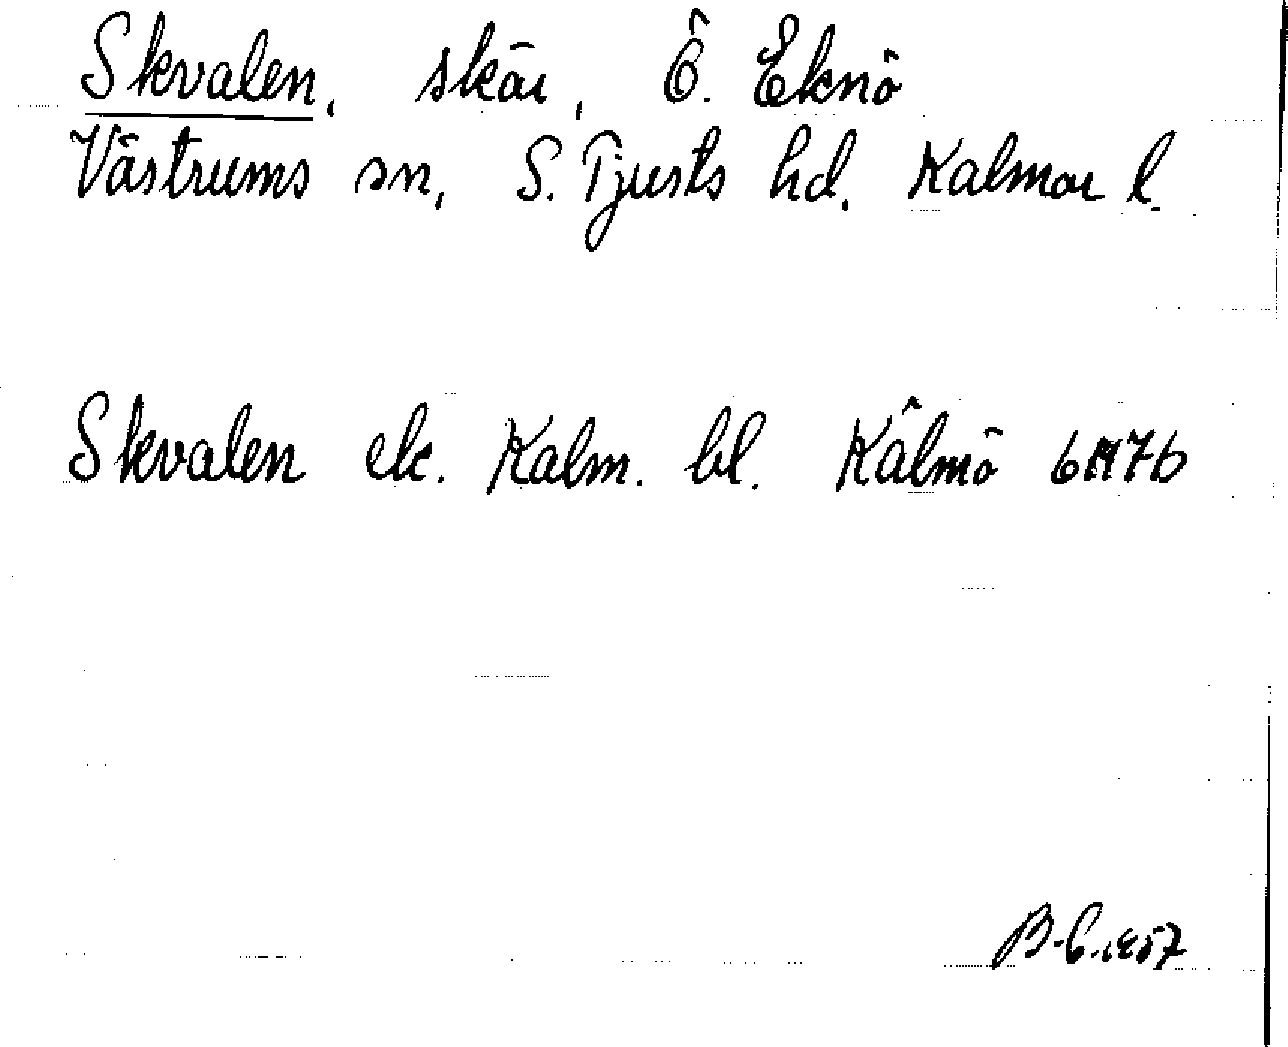 Skvalen, skär, Ö. Eknö
Västrums sn, S. Tjusts hd. Kalmar l.
Skvalen ek. Kalm. bl. Kålmö 6H7b